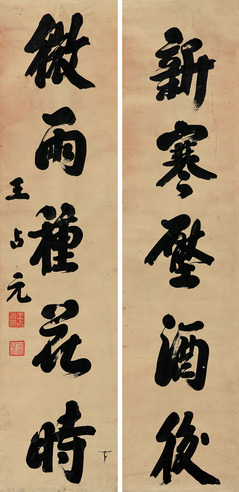 新寒壓酒後
微雨種花時
王占元